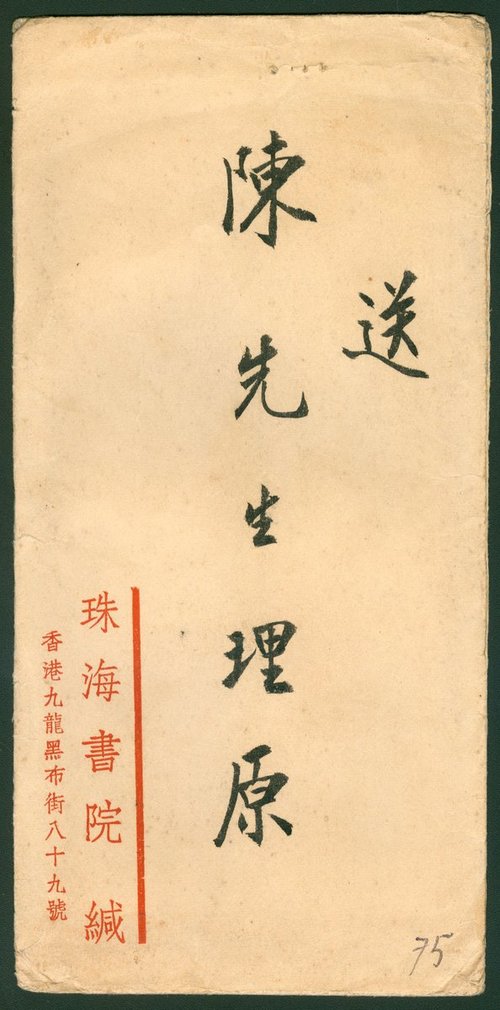 送
陳先生理原
珠海書院緘
香港九龍黑布街八十九號
75